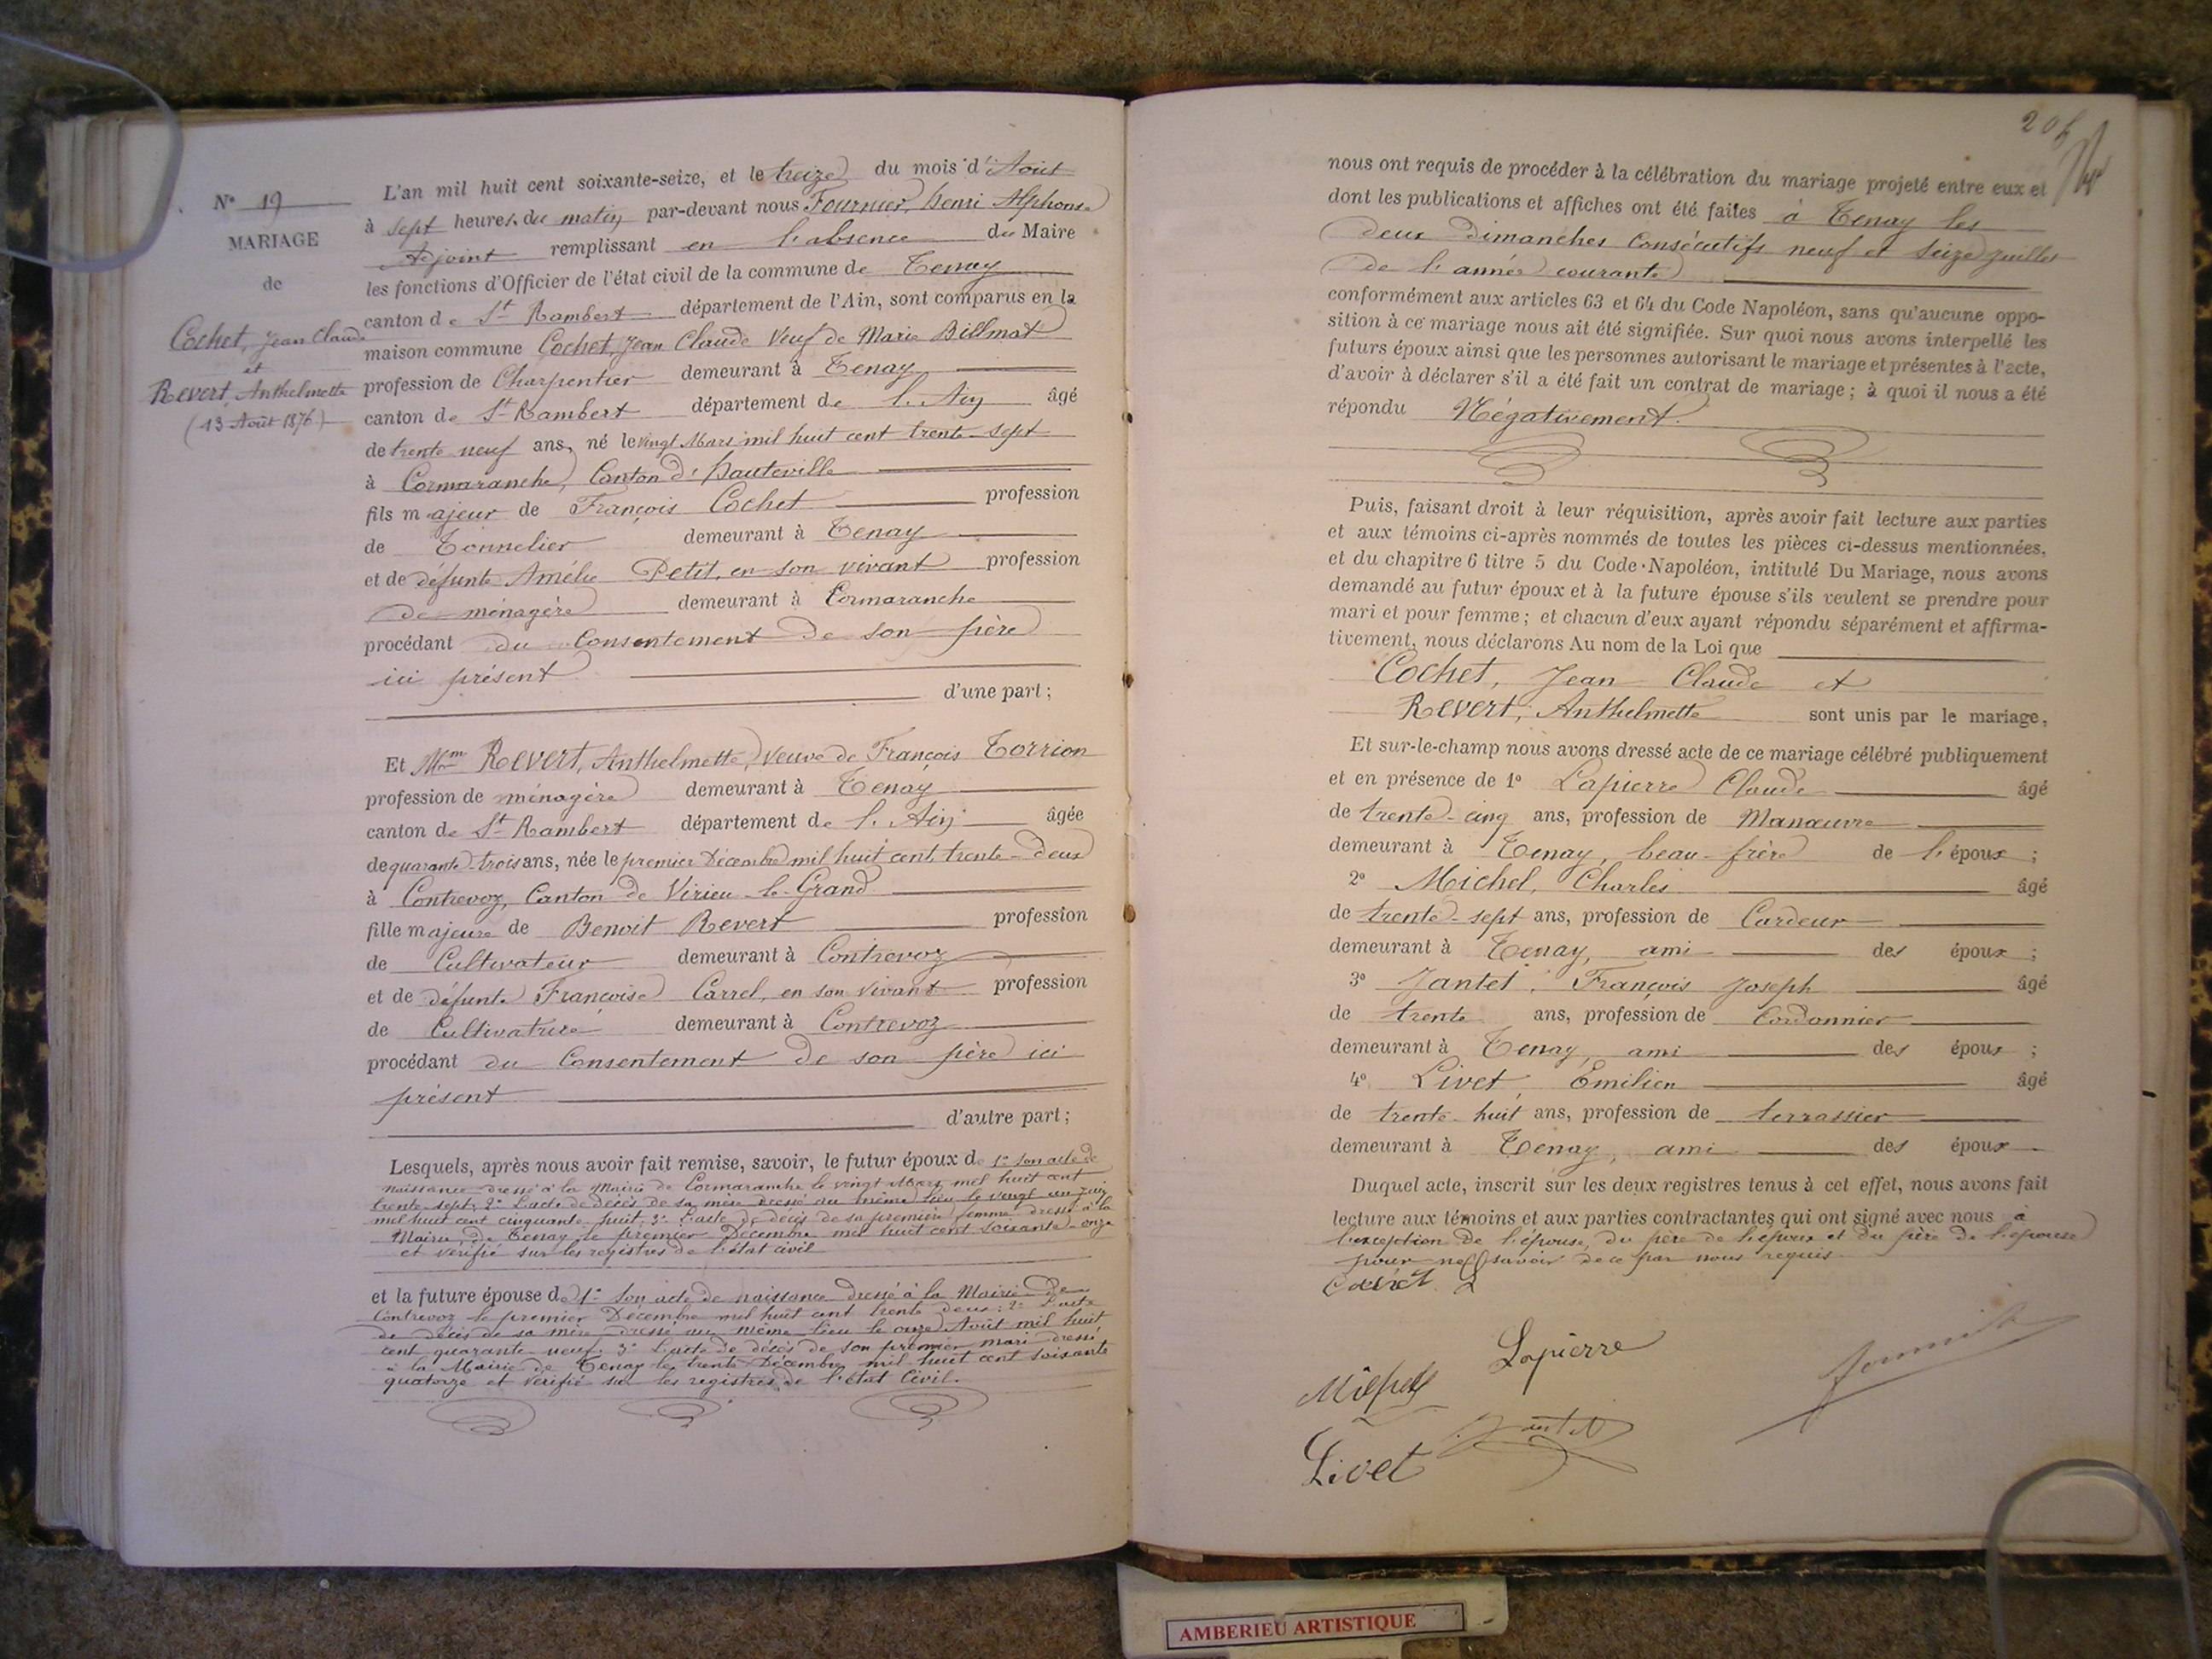 N° 19
MARIAGE
de
Cochet, Jean Claude
et
Revert, Anthelmette
(13 Août 1876)
L'an mil huit cent soixante-seize, et le treize du mois d'Août
à sept heures du matin par-devant nous Fournier, Henri Alphonse
Adjoint remplissant en l'absence du Maire
les fonctions d'Officier de l'état civil de la commune de Tenay
canton de St Rambert département de l'Ain, sont comparus en la
maison commune Cochet, Jean Claude Veuf de Marie Billmat
profession de Charpentier demeurant à Tenay
canton de St Rambert département de l'Ain âgé
de trente neuf ans, né le vingt Mars mil huit cent trente-sept
à Cormaranche, Canton d'Hauteville
fils majeur de François Cochet profession
de Tonnelier demeurant à Tenay
et de défunte Amélie Petit, en son vivant profession
de ménagère demeurant à Cormaranche
procédant du Consentement de son père
ici présent
d'une part ;
Et Mme Revert, Anthelmette, Veuve de François Torrion
profession de ménagère demeurant à Tenay
canton de St Rambert département de l'Ain âgée
de quarante-trois ans, née le premier Décembre mil huit cent trente-deux
à Contrevoz, Canton de Virieu-le-Grand
fille majeure de Benoit Revert profession
de Cultivateur demeurant à Contrevoz
et de défunte Françoise Carrel, en son vivant profession
de Cultivatrice demeurant à Contrevoz
procédant du Consentement de son père ici
présent
d'autre part ;
Lesquels, après nous avoir fait remise, savoir, le futur époux de 1° son acte de
naissance dressé à la Mairie de Cormaranche le vingt Mars mil huit cent
trente-sept; 2° L'acte de décès de sa mère dressé au même lieu le vingt un Juin
mil huit cent cinquante-huit, 3° L'acte de décès de sa première femme dressé à la
Mairie de Tenay le premier Décembre mil huit cent soixante-onze
et vérifié sur les registres de l'état civil
et la future épouse de 1° Son acte de naissance dressé à la Mairie de
Contrevoz le premier Décembre mil huit cent trente deux; 2° L'acte
de décès de sa mère dressé au même lieu le onze Août mil huit
cent quarante-neuf, 3° L'acte de décès de son premier mari dressé
à la Mairie de Tenay le trente Décembre mil huit cent soixante
quatorze et vérifié sur les registres de l'état Civil.
nous ont requis de procéder à la célébration du mariage projeté entre eux et
dont les publications et affiches ont été faites à Tenay les
deux Dimanches Consécutifs neuf et seize juillet
de l'année courante
conformément aux articles 63 et 64 du Code Napoléon, sans qu'aucune oppo-
sition à ce mariage nous ait été signifiée. Sur quoi nous avons interpellé les
futurs époux ainsi que les personnes autorisant le mariage et présentes à l'acte,
d'avoir à déclarer s'il a été fait un contrat de mariage ; à quoi il nous a été
répondu Négativement.
Puis, faisant droit à leur réquisition, après avoir fait lecture aux parties
et aux témoins ci-après nommés de toutes les pièces ci-dessus mentionnées,
et du chapitre 6 titre 5 du Code Napoléon, intitulé Du Mariage, nous avons
demandé au futur époux et à la future épouse s'ils veulent se prendre pour
mari et pour femme ; et chacun d'eux ayant répondu séparément et affirma-
tivement, nous déclarons Au nom de la Loi que
Cochet, Jean Claude et
Revert, Anthelmette sont unis par le mariage,
Et sur-le-champ nous avons dressé acte de ce mariage célébré publiquement
et en présence de 1° Lapierre Claude âgé
de trente-cinq ans, profession de Manœuvre
demeurant à Tenay, beau-frère de l'époux ;
2° Michel, Charles âgé
de trente-sept ans, profession de Cardeur
demeurant à Tenay, ami des époux ;
3° Jantet, François Joseph âgé
de trente ans, profession de Cordonnier
demeurant à Tenay, ami des époux ;
4° Livet, Émilien âgé
de trente-huit ans, profession de terrassier
demeurant à Tenay, ami des époux
Duquel acte, inscrit sur les deux registres tenus à cet effet, nous avons fait
lecture aux témoins et aux parties contractantes qui ont signé avec nous à
l'exception de l'épouse, du père de l'époux et du père de l'épouse
pour ne savoir de ce par nous requis
Lapierre
Livet
AMBERIEU ARTISTIQUE